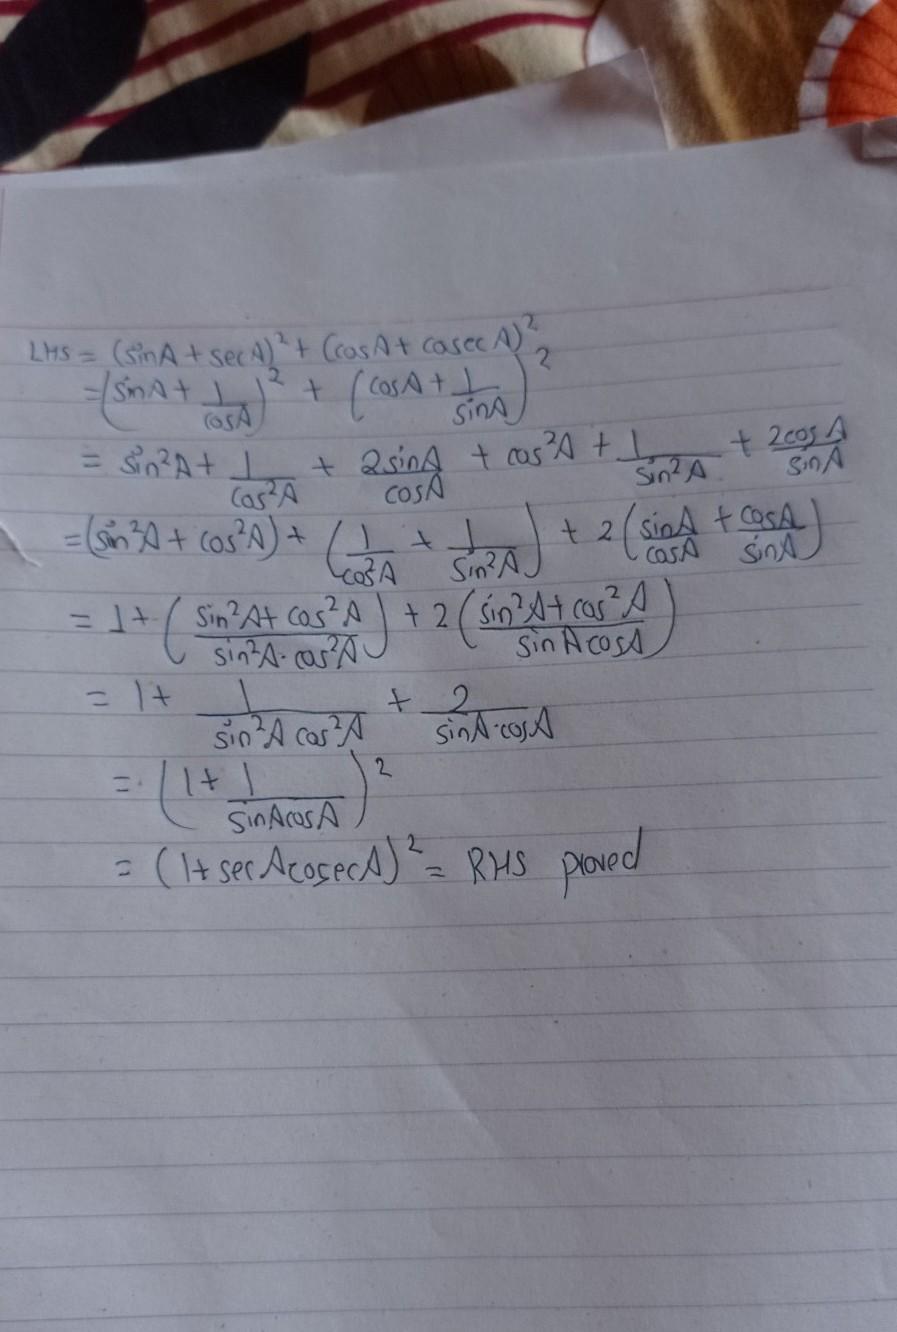 LHS = (sinA + secA)² + (cosA + cosec A)²
= (sinA + 1/cosA)² + (cosA + 1/sinA)²
= sin²A + 1/cos²A + 2sinA/cosA + cos²A + 1/sin²A + 2cosA/sinA
= (sin²A + cos²A) + (1/cos²A + 1/sin²A) + 2(sinA/cosA + cosA/sinA)
= 1 + (sin²A + cos²A/sin²A·cos²A) + 2(sin²A + cos²A/sinAcosA)
= 1 + 1/sin²A cos²A + 2/sinA·cosA
= (1 + 1/sinAcosA)²
= (1 + secAcosecA)² = RHS proved